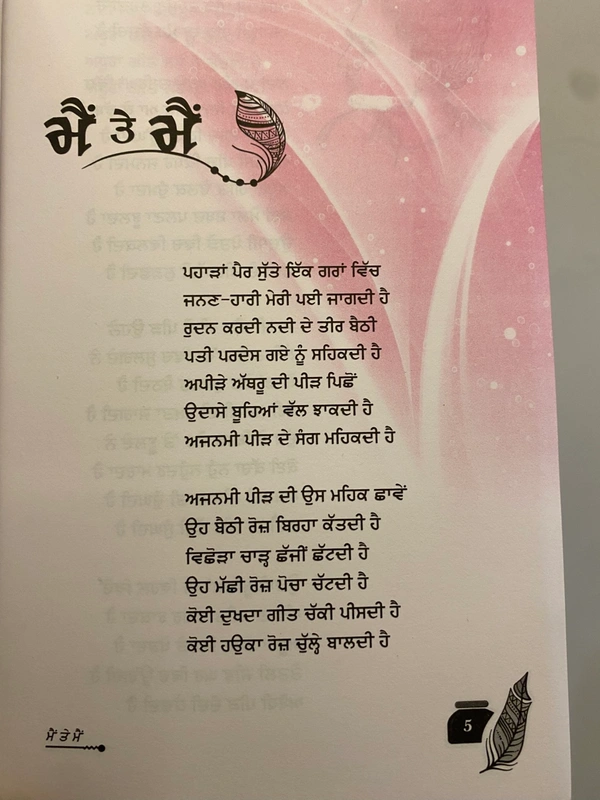 ਮੈਂ ਤੇ ਮੈਂ
ਪਹਾੜਾਂ ਪੈਰ ਸੁੱਤੇ ਇੱਕ ਗਰਾਂ ਵਿੱਚ
ਜਨਣ-ਹਾਰੀ ਮੇਰੀ ਪਈ ਜਾਗਦੀ ਹੈ
ਰੁਦਨ ਕਰਦੀ ਨਦੀ ਦੇ ਤੀਰ ਬੈਠੀ
ਪਤੀ ਪਰਦੇਸ ਗਏ ਨੂੰ ਸਹਿਕਦੀ ਹੈ
ਅਪੀੜੇ ਅੱਥਰੂ ਦੀ ਪੀੜ ਪਿਛੋਂ
ਉਦਾਸੇ ਬੂਹਿਆਂ ਵੱਲ ਝਾਕਦੀ ਹੈ
ਅਜਨਮੀ ਪੀੜ ਦੇ ਸੰਗ ਮਹਿਕਦੀ ਹੈ
ਅਜਨਮੀ ਪੀੜ ਦੀ ਉਸ ਮਹਿਕ ਛਾਵੇਂ
ਉਹ ਬੈਠੀ ਰੋਜ਼ ਬਿਰਹਾ ਕੱਤਦੀ ਹੈ
ਵਿਛੋੜਾ ਚਾੜ੍ਹ ਛੱਜੀਂ ਛੱਟਦੀ ਹੈ
ਉਹ ਮੱਛੀ ਰੋਜ਼ ਪੋਚਾ ਚੱਟਦੀ ਹੈ
ਕੋਈ ਦੁਖਦਾ ਗੀਤ ਚੱਕੀ ਪੀਸਦੀ ਹੈ
ਕੋਈ ਹਉਕਾ ਰੋਜ਼ ਚੁੱਲ੍ਹੇ ਬਾਲਦੀ ਹੈ
ਮੈਂ ਤੇ ਮੈਂ
5